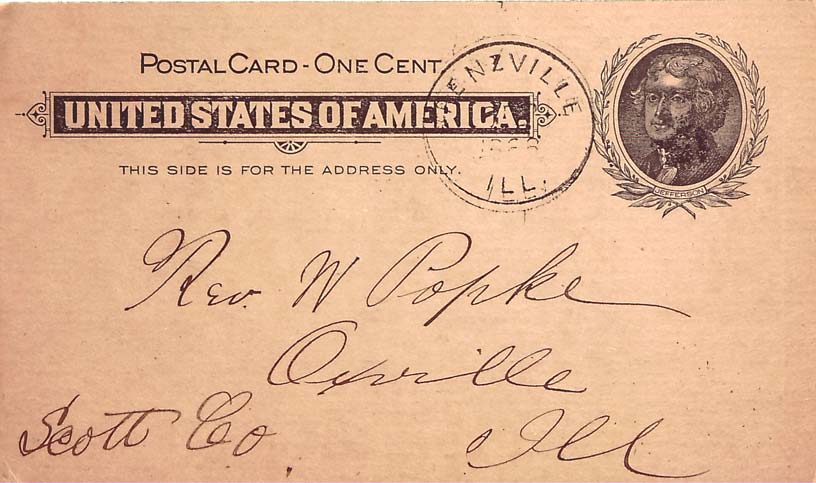 POSTAL CARD - ONE CENT
UNITED STATES OF AMERICA.
THIS SIDE IS FOR THE ADDRESS ONLY.
ENZVILLE
ILL.
JEFFERSON
Rev. W Popke
Oxville
Scott Co Ill